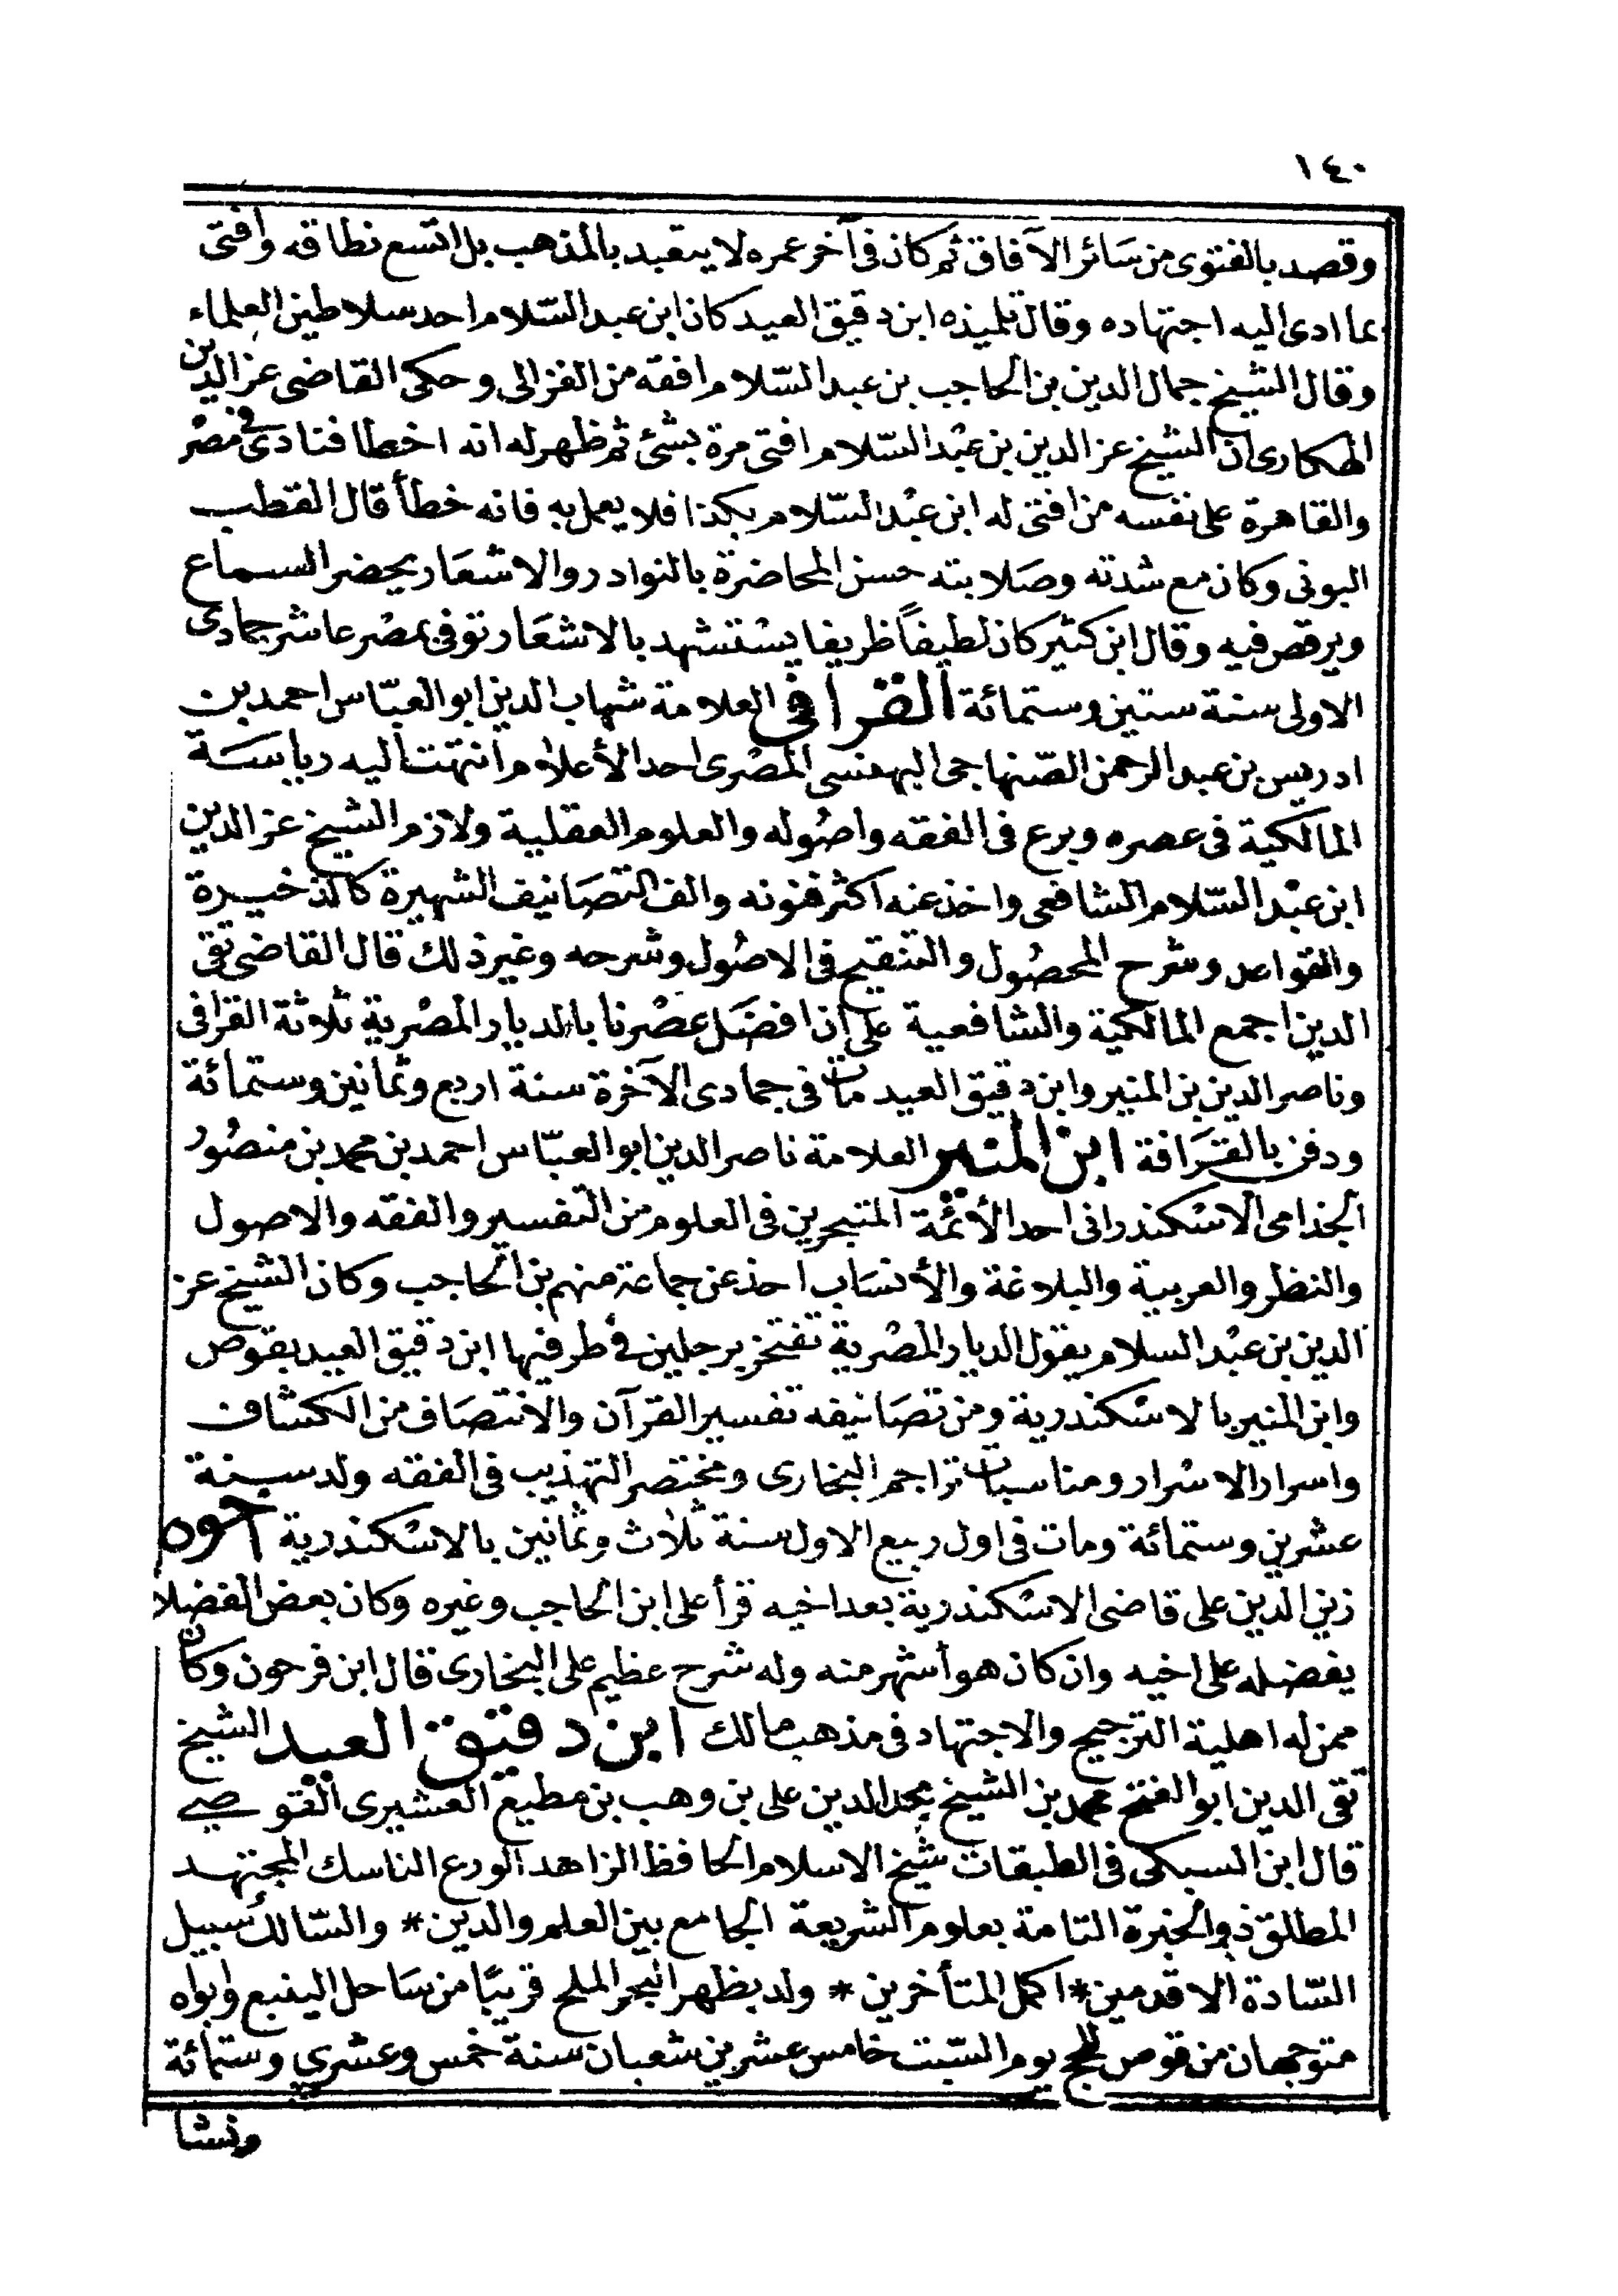 ١٤٠
وقصد بالفتوى من سائر الآفاق ثم كان فى آخر عمره لا يتقيد بالمذهب بل اتسع نطاقه وافتى
بما ادى اليه اجتهاده وقال تلميذه ابن دقيق العيد كان ابن عبد السّلام احد سلاطين العلماء
وقال الشيخ جمال الدين بن الحاجب بن عبد السّلام افقه من الغزالى وحكى القاضى عز الدين
الهكارى ان الشيخ عز الدين بن عبْد السّلام افتى مرة بشئ ثم ظهر له انه اخطا فنادى فى مصْر
والقاهرة على نفسه من افتى له ابن عبْد السّلام بكذا فلا يعمل به فانه خطأ قال القطب
اليونى وكان مع شدته وصلابته حسن المحاضرة بالنوادر والاشعار يحضر السماع
ويرقص فيه وقال ابن كثير كان لطيفاً ظريفا يستشهد بالاشعار توفى بمصْر عاشر جمادى
الاولى سنة ستين وستمائة القرافى العلامة شهاب الدين ابو العبّاس احمد بن
ادريس بن عبد الرحمن الصّنهاجى البهنسى المصْرى احد الأعلام انتهت اليه رياسة
المالكية فى عصره وبرع فى الفقه واصُوله والعلوم العقلية ولازم الشيخ عز الدين
ابن عبْد السّلام الشافعى واخذ عنه اكثر فنونه والف التصانيف الشهيرة كالذخيرة
والقواعد وشرح المحصُول والتنقيح فى الاصُول وشرحه وغير ذلك قال القاضى تقى
الدين اجمع المالكية والشافعية على ان افضل عصْرنا بالديار المصْرية ثلاثة القرافى
وناصر الدين بن المنير وابن دقيق العيد مات فى جمادى الآخرة سنة اربع وثمانين وستمائة
ودفن بالقرافة ابن المنير العلامة ناصر الدين ابو العبّاس احمد بن محمد بن منصُور
الجذامى الاسْكندرانى احد الأئمّة المتبحرين فى العلوم من التفسير والفقه والاصول
والنظر والعربية والبلاغة والأنساب اخذ عن جماعة منهم بن الحاجب وكان الشيخ عز
الدين بن عبْد السلام يقول الديار المصْرية تفتخر برجلين فى طرفيها ابن دقيق العيد بقوص
وابن المنير بالاسْكندرية ومن تصَانيفه تفسير القرآن والانتصَاف من الكشاف
واسرار الاسْرار ومناسبات تراجم البخارى ومختصر التهذيب فى الفقه ولد سنة
عشرين وستمائة ومات فى اول ربيع الاول سنة ثلاث وثمانين بالاسْكندرية اخوه
زين الدين على قاضى الاسْكندرية بعد اخيه قرأ على ابن الحاجب وغيره وكان بعض الفضلا
يفضله على اخيه وان كان هو أشهر منه وله شرح عظيم على البخارى قال ابن فرحون وكان
ممن له اهلية الترجيح والاجتهاد فى مذهب مالك ابن دقيق العيد الشيخ
تقى الدين ابو الفتح محمد بن الشيخ مجد الدين على بن وهب بن مطيع القشيرى القوصى
قال ابن السبكى فى الطبقات شيخ الاسلام الحافظ الزاهد الورع الناسك المجتهد
المطلق ذو الخبرة التامة بعلوم الشريعة الجامع بين العلم والدين * والسّالك سبيل
السّادة الاقدمين * اكمل المتأخرين * ولد بظهر البحر الملح قريبًا من ساحل الينبع وابواه
متوجهان من قوص للحج يوم السّبت خامس عشرين شعبان سنة خمس وعشرى وستمائة
ونشا